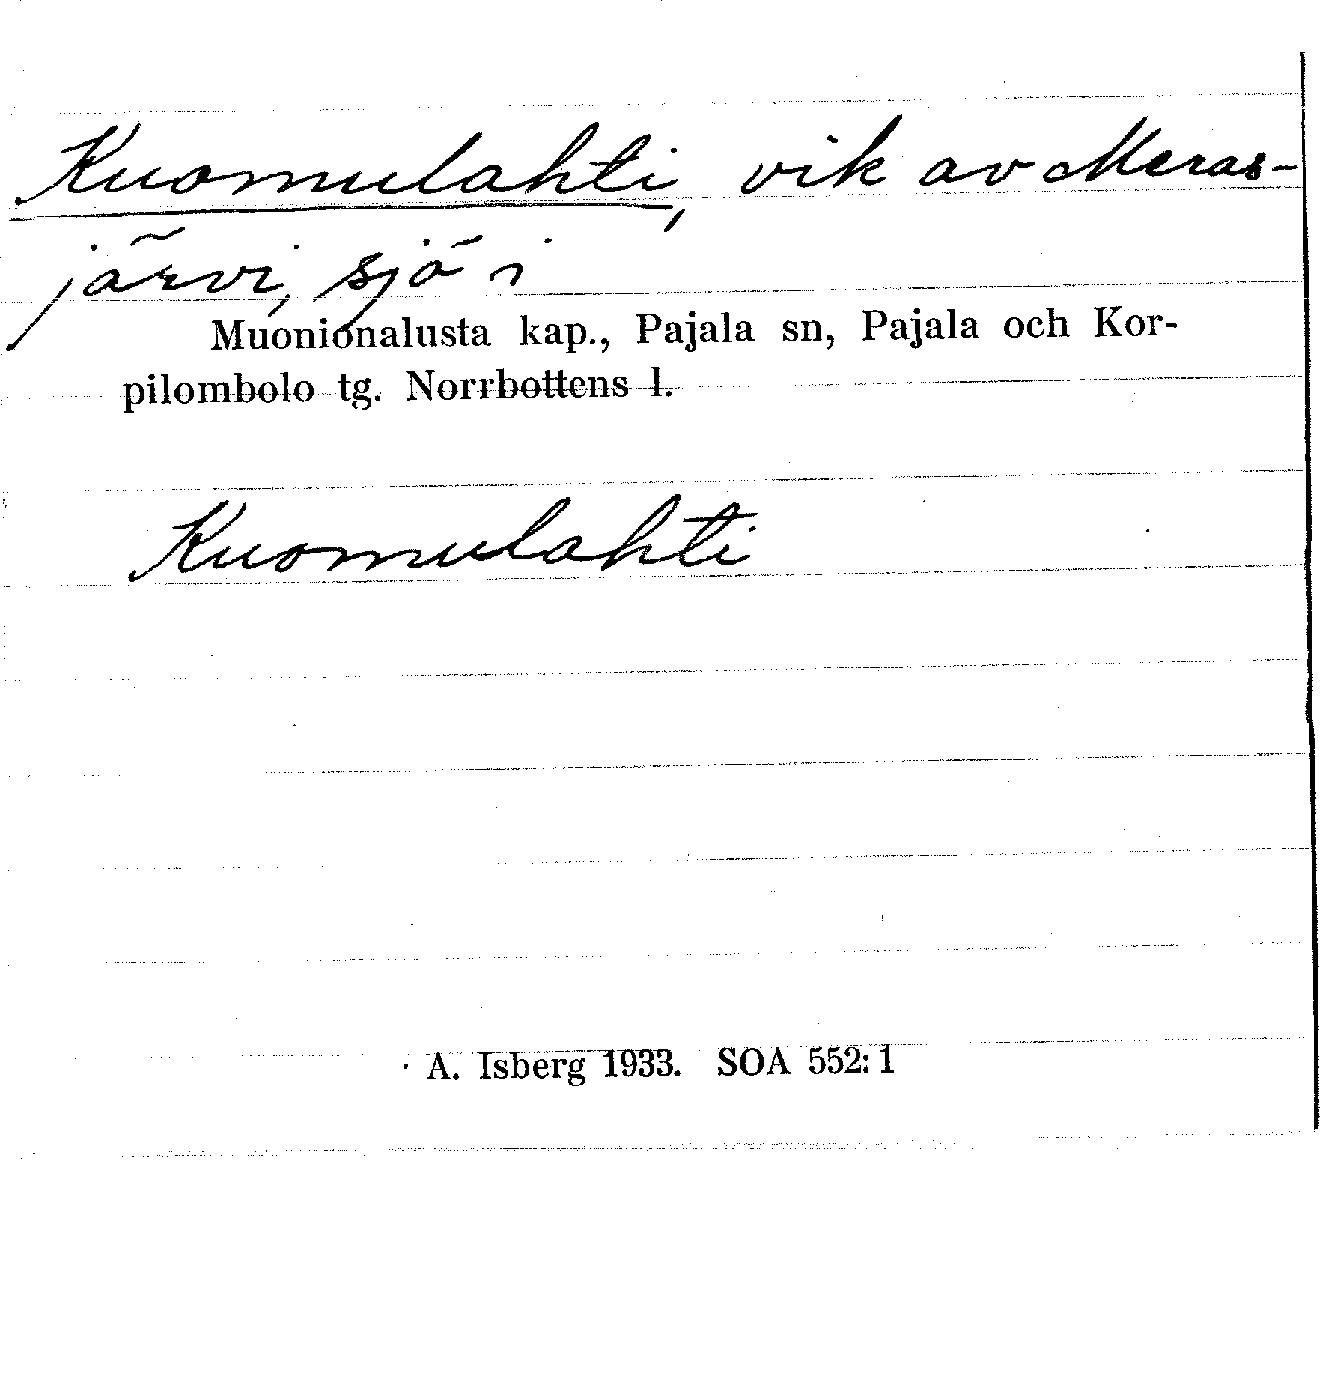 Kuomulahti, vik av Meras-
järvi, sjö i
Muonionalusta kap., Pajala sn, Pajala och Kor-
pilombolo tg. Norrbottens l.
Kuomulahti
A. Isberg 1933. SOA 552: 1